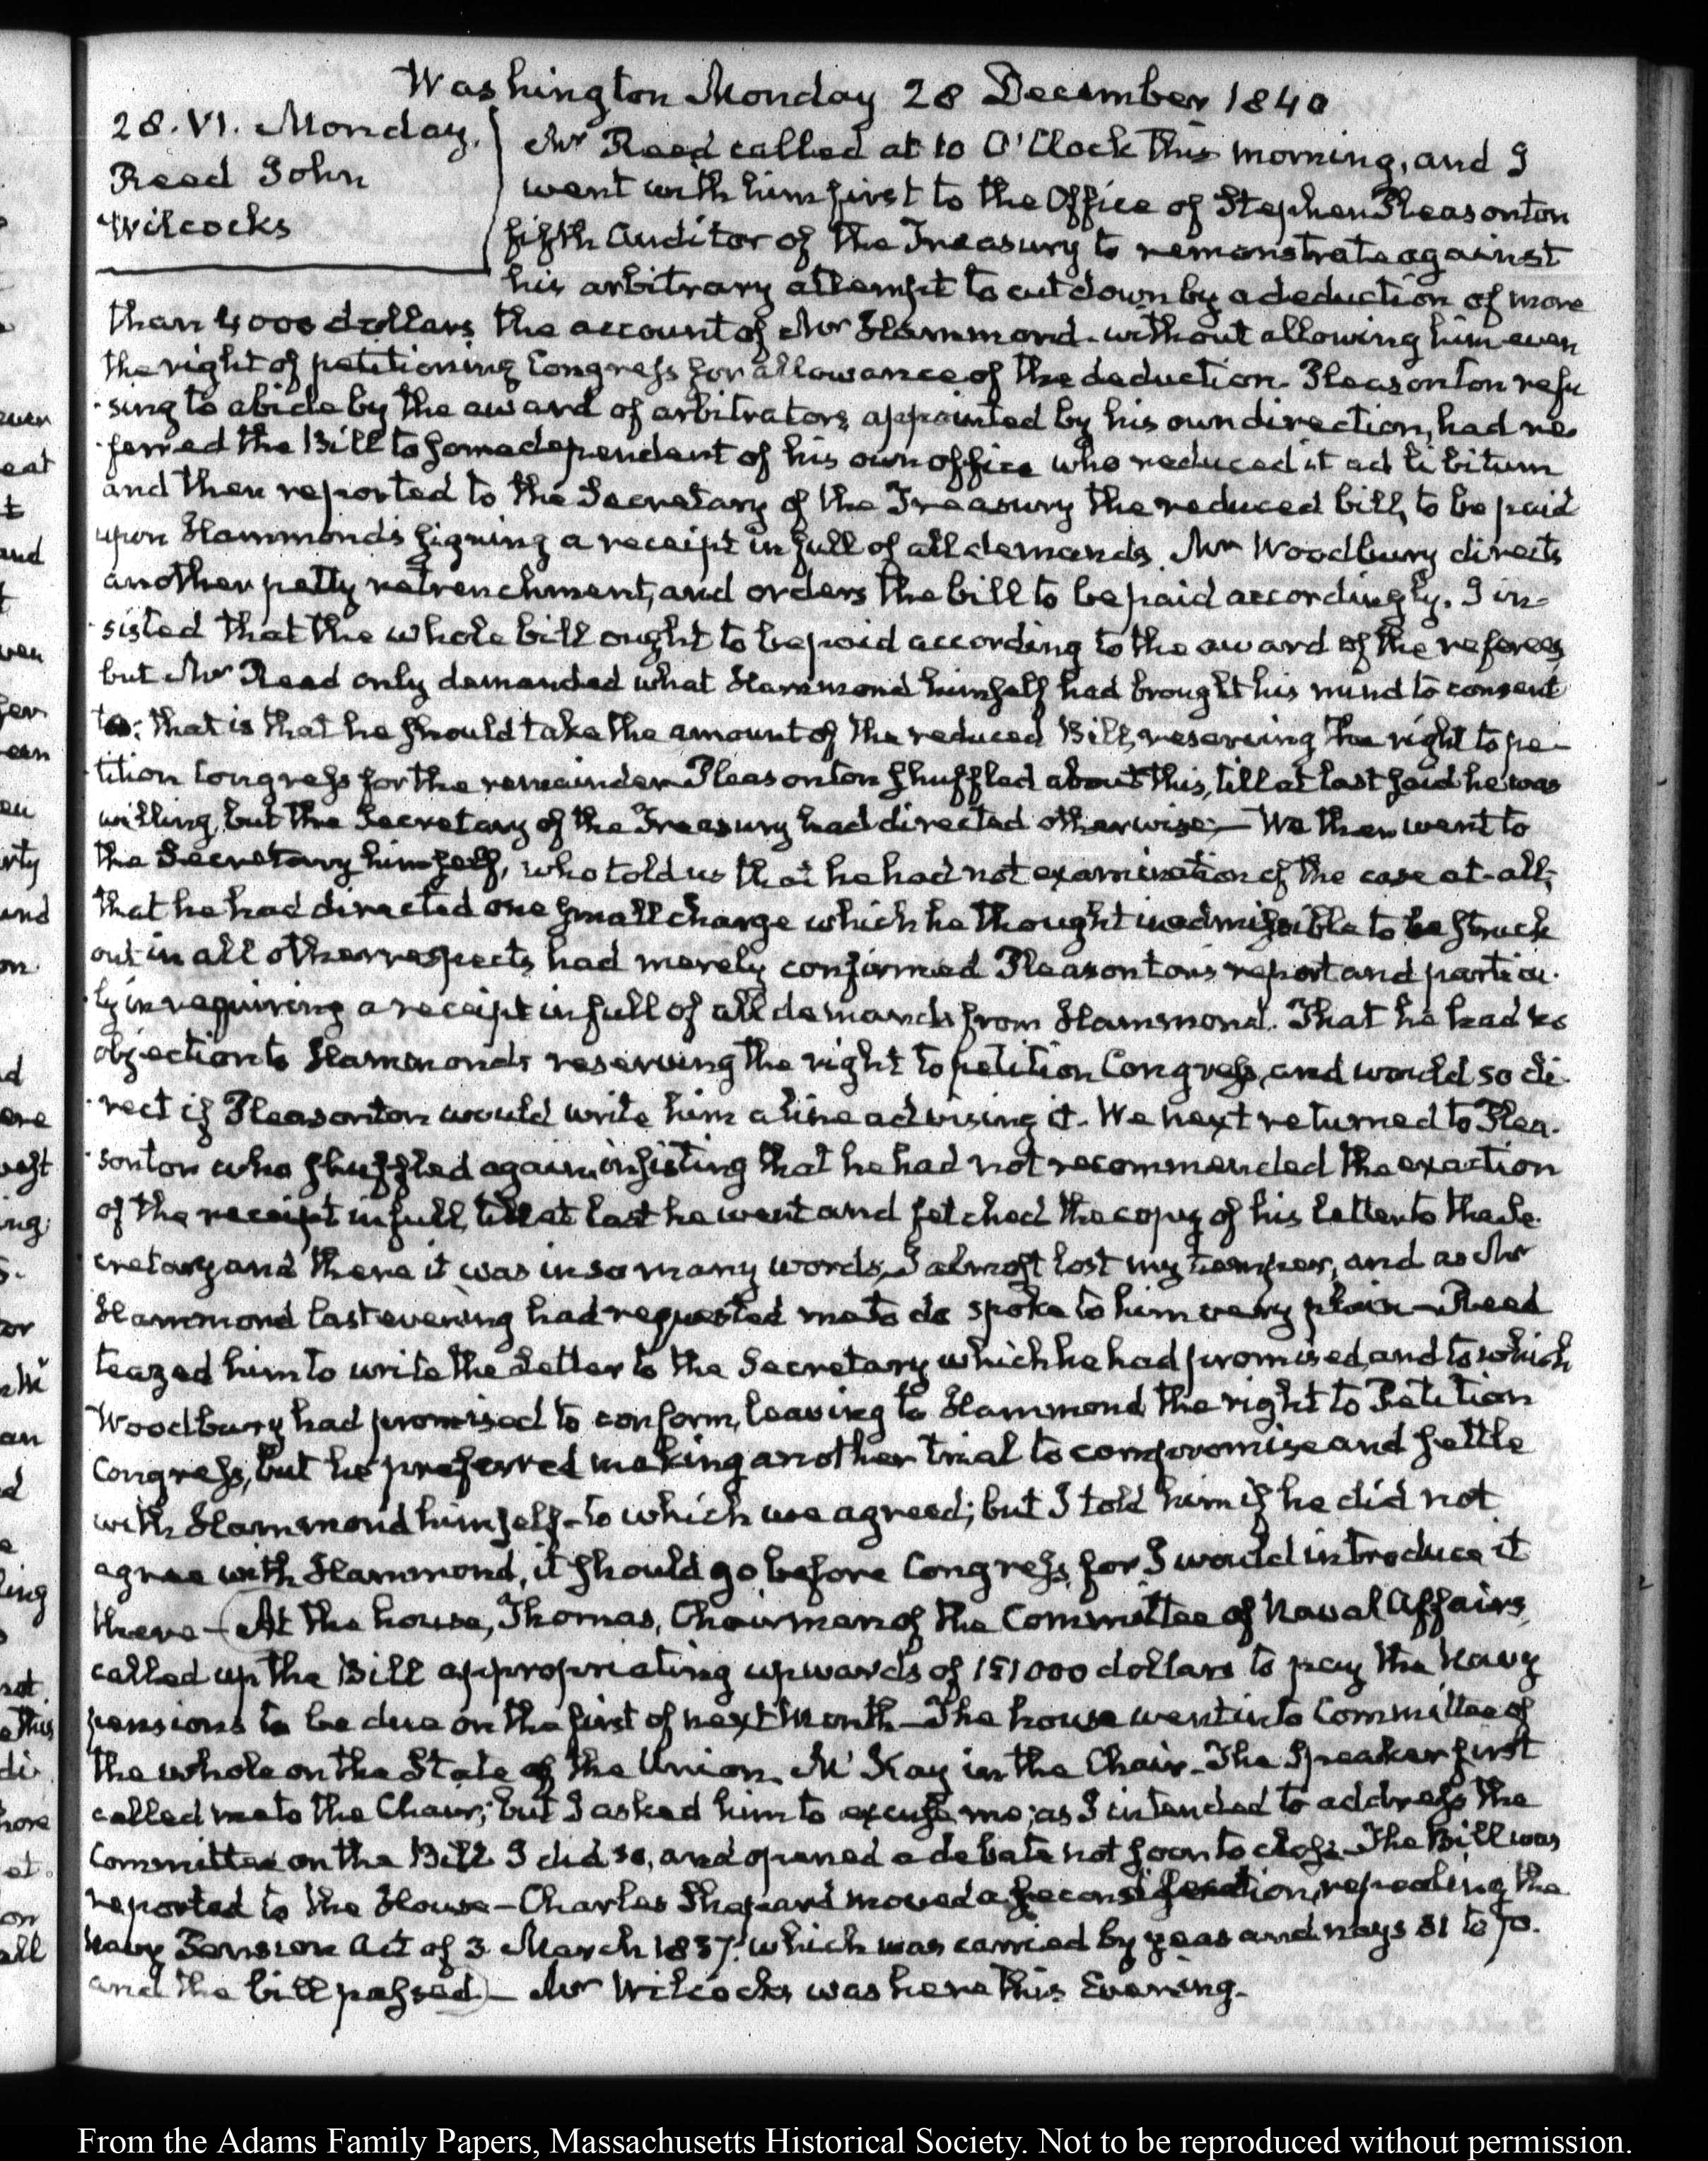 Washington Monday 28 December 1840
28. VI. Monday.
Reed John
Wilcocks
Mr Reed called at 10 O'Clock this morning, and I
went with him first to the Office of Stephen Pleasonton
fifth Auditor of the Treasury to remonstrate against
his arbitrary attempt to cut down by a deduction of more
than 4000 dollars the account of Mr Hammond. without allowing him even
the right of petitioning Congress for allowance of the deduction. Pleasonton refu
-sing to abide by the award of arbitrators appointed by his own direction, had re-
-ferred the Bill to some dependent of his own office who reduced it ad libitum
and then reported to the Secretary of the Treasury the reduced bill, to be paid
upon Hammond's signing a receipt in full of all demands. Mr Woodbury directs
another petty retrenchment, and orders the bill to be paid accordingly. I in-
-sisted that the whole bill ought to be paid according to the award of the referees
but Mr Reed only demanded what Hammond himself had brought his mind to consent
to: that is that he should take the amount of the reduced Bill, reserving the right to pe-
-tition Congress for the remainder Pleasonton shuffled about this, till at last said he was
willing, but the Secretary of the Treasury had directed otherwise;— We then went to
the Secretary himself, who told us that he had not examination of the case at-all;
that he had directed one small charge which he thought inadmissible to be struck
out in all other respects had merely confirmed Pleasonton's report and particu-
-ly in requiring a receipt in full of all demands from Hammond. That he had no
objection to Hammond's reserving the right to petition Congress, and would so di-
-rect if Pleasonton would write him a line advising it. We next returned to Plea-
-sonton who shuffled again insisting that he had not recommended the exaction
of the receipt in full, till at last he went and fetched the copy of his letter to the Se-
cretary and there it was in so many words, I almost lost my temper, and as Mr
Hammond last evening had requested me to do spoke to him very plain— Reed
teazed him to write the Letter to the Secretary which he had promised, and to which
Woodbury had promised to conform, leaving to Hammond the right to Petition
Congress, but he preferred making another trial to compromise and settle
with Hammond himself— to which we agreed; but I told him if he did not
agree with Hammond, it should go before Congress, for I would introduce it
there— (At the house, Thomas, Chairman of the Committee of Naval Affairs,
called up the Bill appropriating upwards of 151000 dollars to pay the Navy
pensions to be due on the first of next Month— The house went into Committee of
the whole on the State of the Union. McKay in the Chair— The Speaker first
called me to the Chair; but I asked him to excuse me; as I intended to address the
Committee on the Bill I did so, and opened a debate not soon to close. The Bill was
reported to the House— Charles Shepard moved a repealing the
Navy Pension Act of 3 March 1837. which was carried by yeas and nays 81 to 70.
and the bill passed)— Mr Wilcocks was here this Evening.
From the Adams Family Papers, Massachusetts Historical Society. Not to be reproduced without permission.